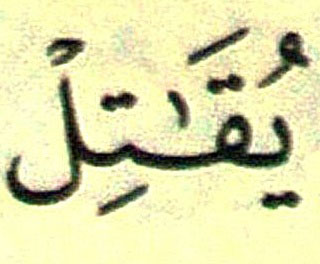 يُقَٰتِلْ